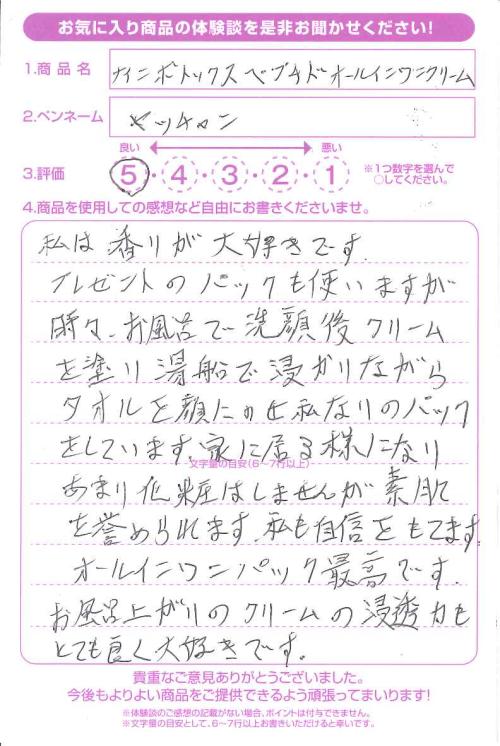 お気に入り商品の体験談を是非お聞かせください!
1.商品名 ナインボトックスペプチドオールインワンクリーム
2.ペンネーム ヤッチャン
良い 悪い
3.評価 5・4・3・2・1 ※1つ数字を選んで
○してください。
4.商品を使用しての感想など自由にお書きくださいませ。
私は香りが大好きです。
プレゼントのパックも使いますが
時々、お風呂で洗顔後クリーム
を塗り湯船で浸かりながら
タオルを顔にのせ私なりのパック
をしています。家に居る様になり
文字量の目安(6〜7行以上)
あまり化粧はしませんが素肌
を誉められます。私も自信をもてます。
オールインワンパック最高です。
お風呂上がりのクリームの浸透力も
とても良く大好きです。
貴重なご意見ありがとうございました。
今後もよりよい商品をご提供できるよう頑張ってまいります!
※体験談のご感想の記載がない場合、ポイントは付与できません。
※文字量の目安として、6〜7行以上お書きいただけると幸いです。